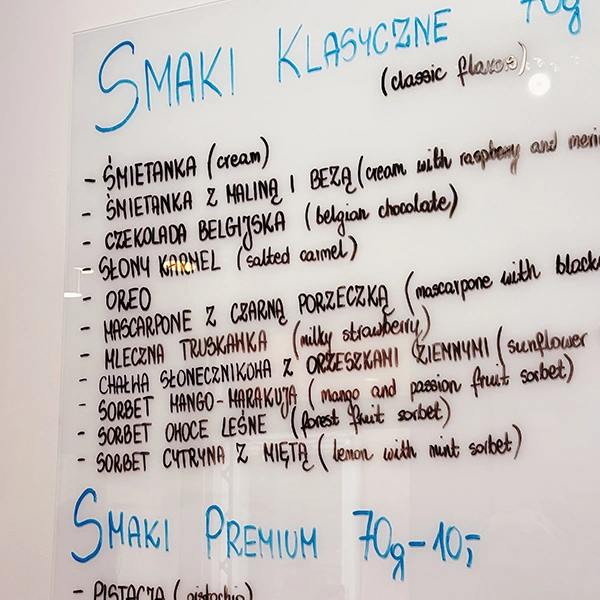 SMAKI KLASYCZNE 70g
(classic flavors)
- ŚMIETANKA (cream)
- ŚMIETANKA Z MALINĄ I BEZĄ (cream with raspberry and
- CZEKOLADA BELGIJSKA (belgian chocolate)
- SŁONY KARMEL (salted carmel)
- OREO
- MASCARPONE Z CZARNĄ PORZECZKĄ (mascarpone with
- MLECZNA TRUSKAWKA (milky strawberry)
- CHAŁWA SŁONECZNIKOWA Z ORZESZKAMI ZIEMNYMI (sunflower
- SORBET MANGO-MARAKUJA (mango and passion fruit sorbet)
- SORBET OWOCE LEŚNE (forest fruit sorbet)
- SORBET CYTRYNA Z MIĘTĄ (lemon with mint sorbet)
SMAKI PREMIUM 70g-10,-
- PISTACJA (pistachio)